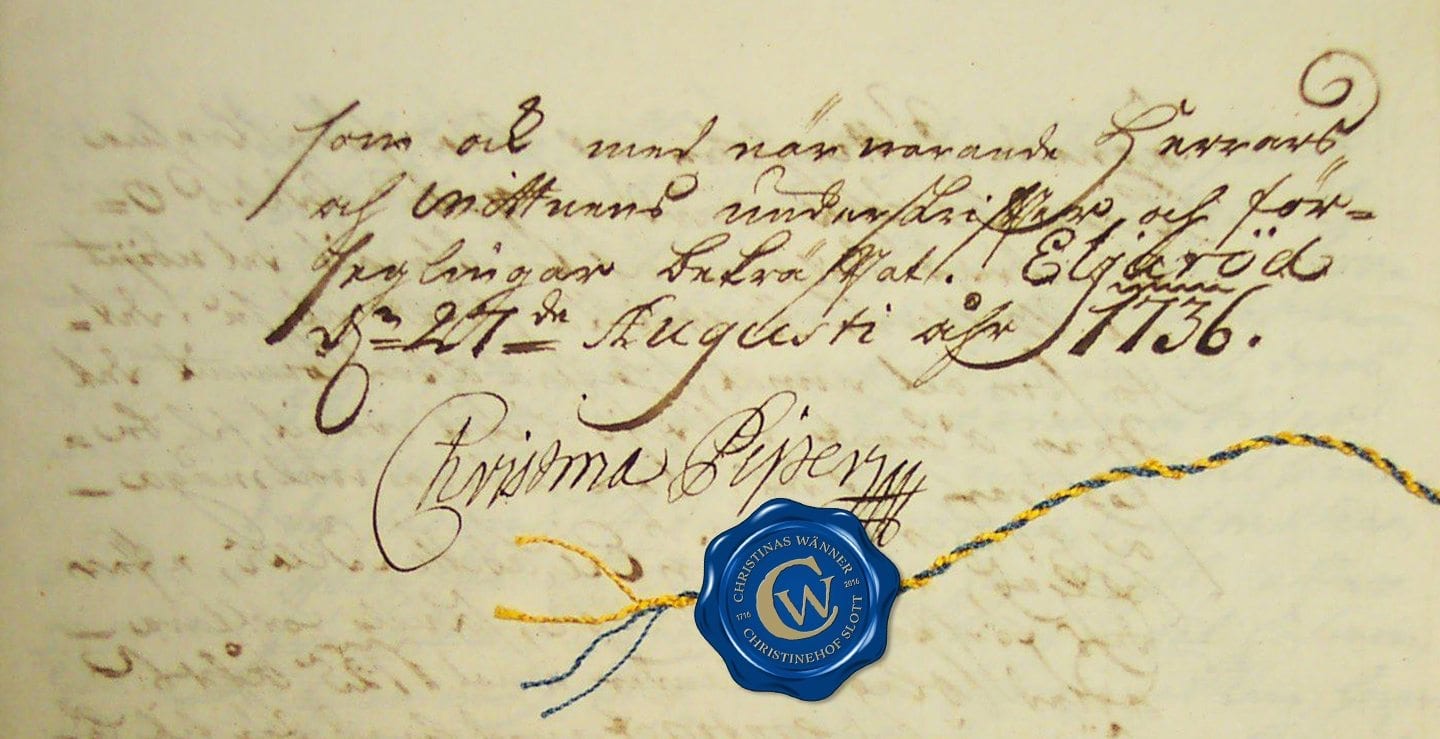 som ock med när warande Herrars
och Wittnens underskrifter och för=
seglingar bekräfftat. Eljaröd
d:n 27de Augusti åhr 1736.
Christina Piper
CHRISTINAS WÄNNER
1716 CW 2016
CHRISTINEHOF SLOTT